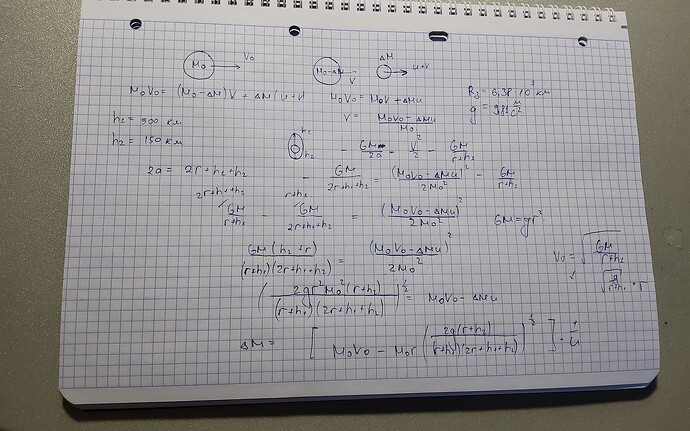 M₀ V₀ M₀-ΔM V ΔM u+V
M₀V₀ = (M₀-ΔM)V + ΔM(u+V M₀V₀ = M₀V + ΔMu
V = (M₀V₀ - ΔMu)/M₀
R₃ = 6,38 10³ км
g = 9,81 м/с²
h₁ = 300 км
h₂ = 150 км
h₁ h₂ - GM/2a = V²/2 - GM/(r+h₁)
2a = 2r+h₁+h₂ - GM/(2r+h₁+h₂) = (M₀V₀ - ΔMu)²/2M₀² - GM/(r+h₁)
2r+h₁+h₂ r+h₁
GM/(r+h₁) - GM/(2r+h₁+h₂) = (M₀V₀ - ΔMu)²/2M₀² GM = gr²
GM(h₂+r)/((r+h₁)(2r+h₁+h₂)) = (M₀V₀ - ΔMu)²/2M₀² V₀ = √(GM/(r+h₁))
(2gr²M₀²(r+h₂)/((r+h₁)(2r+h₁+h₂)))^½ = M₀V₀ - ΔMu √(g/(r+h₁)) · r
ΔM = [M₀V₀ - M₀r (2g(r+h₂)/((r+h₁)(2r+h₁+h₂)))^½] · 1/u